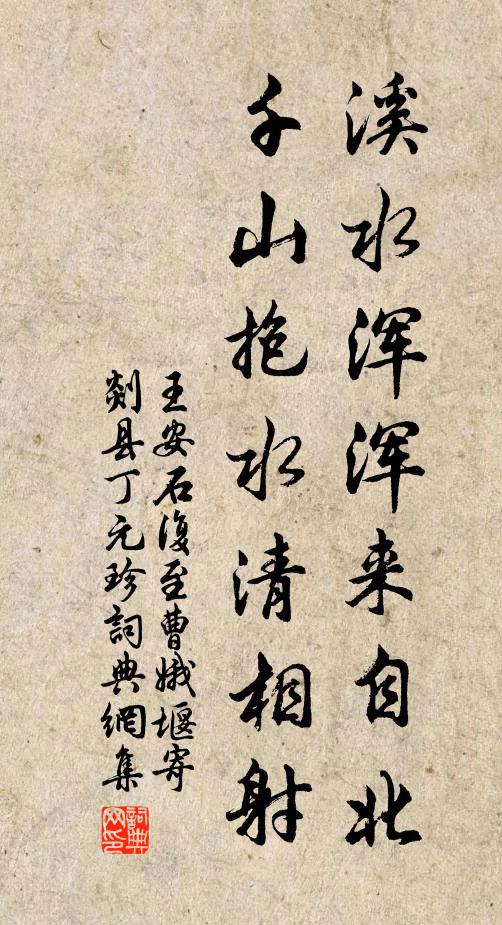 溪水浑浑来自北
千山抱水清相射
王安石復至曹娥堰寄
剡县丁元珍詞典網集
詞典网印